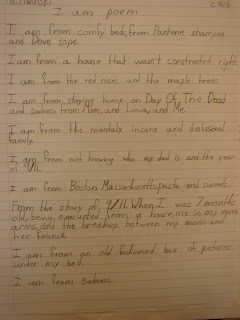 I am poem
I am from comfy beds, from Pantene shampoo
and Dove sope.
I am from a house that wasn't constructed right.
I am from the red roses and the maple trees.
I am from staying home on Day Of The Dead
and sadness from Mom, and Lucia, and Me.
I am from the mentaly insane and delusional
family.
I am from not knowing who my dad is and the year
of 9/11.
I am from Boston Massachusetts, pasta and sweets.
From the story of 9/11. When I was 7 months
old, being evacuated from a house, me in my moms
arms, and the breakup between my moms and
her feiance.
I am from an old fashioned box of pictures
under my bed.
I am from sadness.